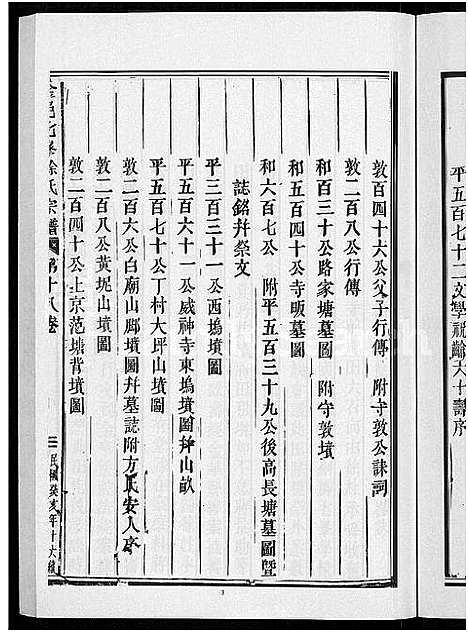 平五百七十二文學祝齡六十壽序
敦百四十六公父子行傳 附守敦公誄詞
敦二百八公行傳
和百三十公路家塘墓圖 附守敦墳
和五百四十公寺畈墓圖
和六百七公 附平五百三十九公後高長塘墓圖暨
誌銘幷祭文
平三百三十一公西塢墳圖
平五百六十一公威神寺東塢墳圖幷山畝
平五百七十公丁村大坪山墳圖
敦二百六公白廟山廊墳圖幷墓誌附方氏安人序
敦二百八公黃坭山墳圖
敦二百四十公上京范塘背墳圖
徐氏宗譜 第十八卷
民國癸亥年十六級